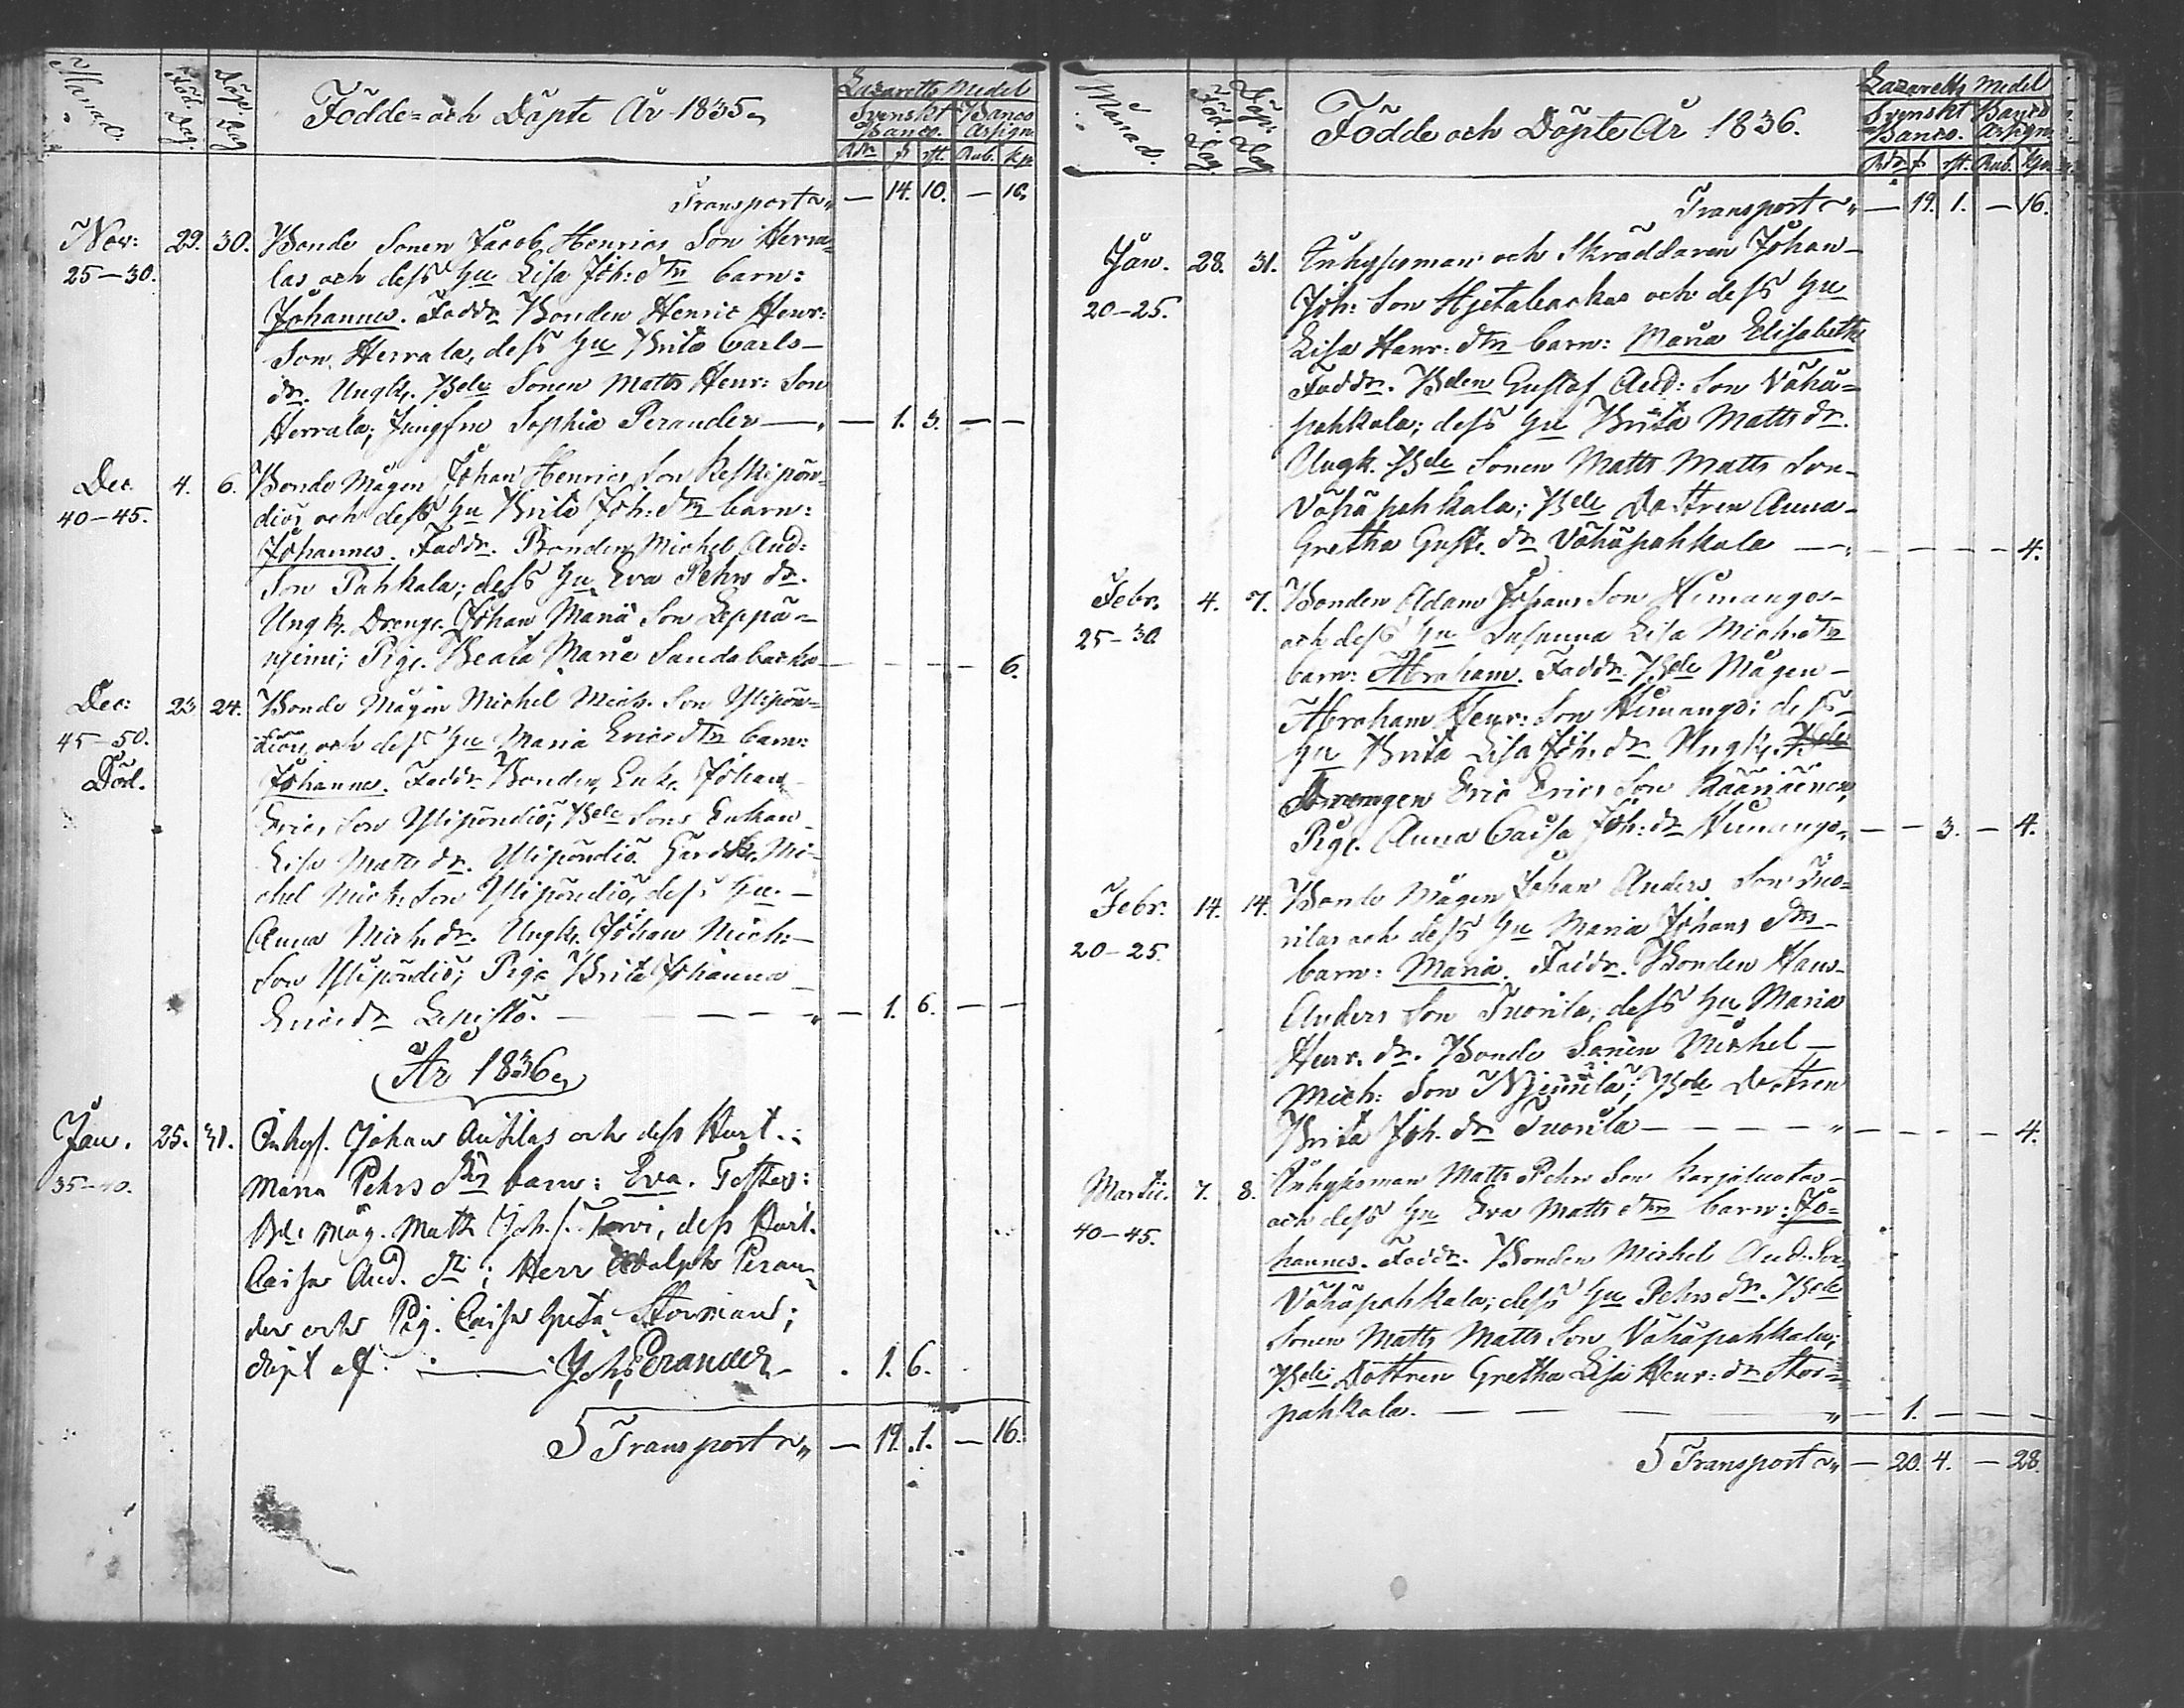 Månad.
Föd. Dag.
Döp. Dag
Födde= och Döpte År 1835
Lazaretts Medel
Svenskt Banco.
Banco Assign
Rdr ß rst. Rub. Kp
Transport — 14. 10. — 10.
Nov: 29. 30. Bonde Sonen Jacob Henrics Son Herra=
25—30. las och dess Hu Lisa Joh: dtr barn:
Johannes. Faddr. Bonden Henric Henr:
Son Herrala, dess Hu Brita Carls—
dr. Ungk. Bde Sonen Matts Henr: Son
Herrala; Jungfru Sophia Perander — — 1. 3. — —
Dec. 4. 6. Bonde Mågen Johan Henrics Son Keskipön=
40—45. diös och dess Hu Brita Joh: dtr barn:
Johannes. Faddr. Bonden Michel And:
Son Pahkala; dess Hu Eva Pehrs dr.
Ungk. Dreng. Johan Mariä Son Leppä=
njemi; Pig. Beata Maria Sandabacka — — — — 6.
Dec: 23 24. Bonde Mågen Michel Mich. Son Ylipön=
45—50. diöu och dess Hu Maria Erics dtr barn:
Död. Johannes. Faddr. Bonden, Enk. Johan
Erics Son Ylipöndiö; Bde Sons Enkan
Lisa Matts dr. Ylipöndiö. Mi=
chel Mich. Son Ylipöndiö, dess Hu.—
Anna Mich. dr. Ungk. Johan Mich:—
Son Ylipöndiö; Piga Brita Johanna
Erics dr Lepistö. — — — — 1. 6. — —
År 1836
Jan. 25. 31. Inhys. Johan Anttilas och dess Hust.:
35—40. Maria Pehrs dtr barn: Eva. Testes:
Bde Måg. Matts Joh. s. Torvi, dess Hust.
Caisa And. dr; Herr Adolph Peran=
der och Pig. Caisa Greta Stormans;
döpt af. — Joh. Perander . 1. 6.
5 Transport — 19. 1. — 16.
Månad.
Föd. Dag
Döp. Dag
Födde och Döpte År 1836.
Lazaretts Medel
Svenskt Banco.
Banco Assign.
Rdr ß rst. Rub. Kp
Transport — 19. 1. — 16.
Jan. 28. 31. Inhysesman och Skräddaren Johan—
20—25. Joh: Son Hjetabackas och dess Hu
Lisa Henr: dtr barn: Maria Elisabeth
Faddr. Bden Gustaf And: Son Vähä=
pahkala; dess Hu Brita Matts dr.
Ungk. Bde Sonen Matts Matts Son—
Vähäpahkala; Bde Dottren Anna—
Gretha Gust. dr Vähäpahkala — — — — 4.
Febr. 4. 7. Bonden Adam Johans Son Himangos—
25—30 och dess Hu Susanna Lisa Mich: dtr
barn: Abraham. Faddr. Bde Mågen—
Abraham Henr: Son Himango; dess—
Hu Brita Lisa Joh. dr Ungk. Bde
Drengen Eric Erics Son Kääriäinen,
Pig. Anna Caisa Joh: dr Himango. — — 3. — 4.
Febr. 14. 14. Bonde Mågen Johan Anders Son Tuo=
20—25. rilas och dess Hu Maria Johans dtr—
barn: Maria. Faddr. Bonden Hans—
Anders Son Tuorila; dess Hu Maria
Henr. dr. Bonde Sonen Michel—
Mich: Son Njemelä; Bde Dottren
Brita Joh. dr Tuorila — — — — 4.
Martii. 7. 8. Inhysesman Matts Pehrs Son Karjaluotos—
40—45. och dess Hu Eva Matts dtr barn: Jo=
hannes. Faddr. Bonden Michel And: Son
Vähäpahkala; dess Hu Pehrs dr. Bde
Sonen Matts Matts Son Vähäpahkala;
Bde Dottren Gretha Lisa Henr: dr Stor=
pahkala. — — — 1. — — —
5 Transport — 20. 4. — 28.